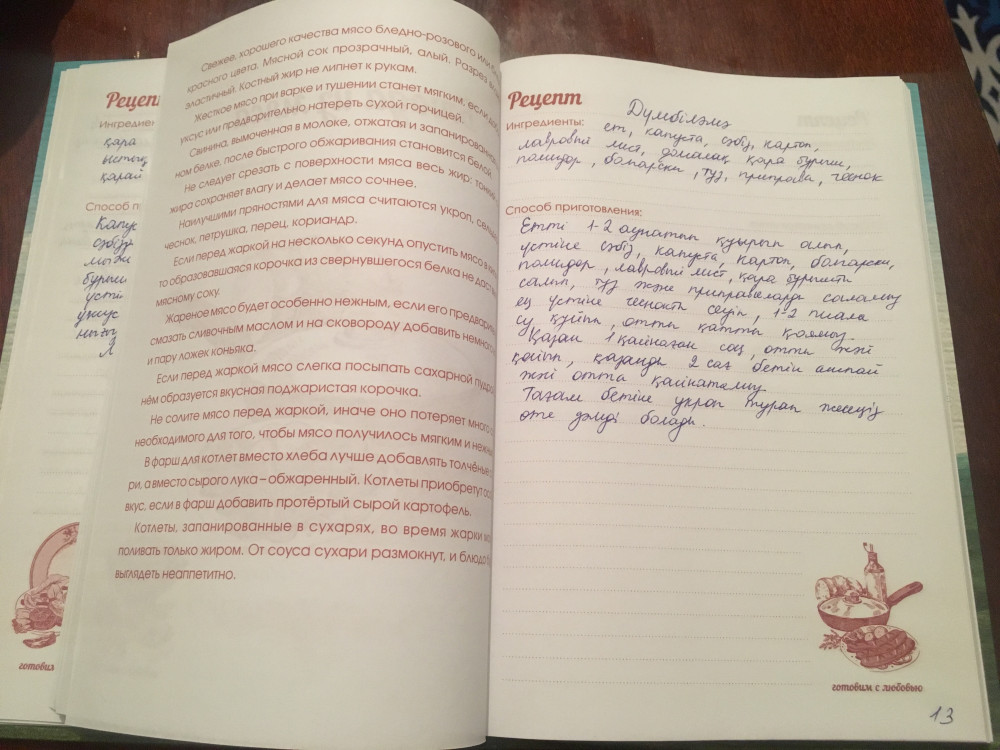 Рецепт
Ингредиен
қара
ыстық
қарай
Способ п
Капус
сәбіз
мызи
бұрыш
үсті
уксус
Я
готовим
Свежее, хорошего качества мясо бледно-розового или
красного цвета. Мясной сок прозрачный, алый. Разрез
эластичный. Костный жир не липнет к рукам.
Жесткое мясо при варке и тушении станет мягким, если доб
уксус или предварительно натереть сухой горчицей.
Свинина, вымоченная в молоке, отжатая и запанированная
ном белке, после быстрого обжаривания становится белой.
Не следует срезать с поверхности мяса весь жир: тонкий
жира сохраняет влагу и делает мясо сочнее.
Наилучшими пряностями для мяса считаются укроп, сельд
чеснок, петрушка, перец, кориандр.
Если перед жаркой на несколько секунд опустить мясо в ки
то образовавшаяся корочка из свернувшегося белка не даст в
мясному соку.
Жареное мясо будет особенно нежным, если его предварит
смазать сливочным маслом и на сковороду добавить немного
и пару ложек коньяка.
Если перед жаркой мясо слегка посыпать сахарной пудро
нём образуется вкусная поджаристая корочка.
Не солите мясо перед жаркой, иначе оно потеряет много с
необходимого для того, чтобы мясо получилось мягким и нежн
В фарш для котлет вместо хлеба лучше добавлять толчёные
ри, а вместо сырого лука – обжаренный. Котлеты приобретут ос
вкус, если в фарш добавить протёртый сырой картофель.
Котлеты, запанированные в сухарях, во время жарки мо
поливать только жиром. От соуса сухари размокнут, и блюдо б
выглядеть неаппетитно.
Рецепт
Думбілэмэ
Ингредиенты: ет, капуста, сәбіз, картоп,
лавровый лист, домалақ қара бұрыш,
помидор, балгарски, тұз, приправа, чеснок
Способ приготовления:
Етті 1-2 аунатып қуырып алып,
үстіне сәбіз, капуста, картоп, балгарски,
помидор, лавровый лист, қара бұрышты
салып, тұз және приправаларды саламыз
ең үстіне чеснокты сеуіп, 1-2 пиала
су құйып, отты қатты қоямыз.
Қазан 1 қайнаған соң, отты жәй
қойып, қазанды 2 сағ бетін ашпай
жәй отта қайнатамыз.
Тағам бетіне укроп турап жесеңіз
өте дәмді болады.
готовим с любовью
13